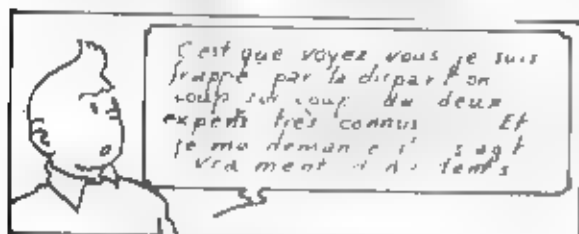 C'est que voyez vous je suis
frappé par la disparition
coup sur coup de deux
experts très connus Et
je me demande s'il s'agit
vraiment d'